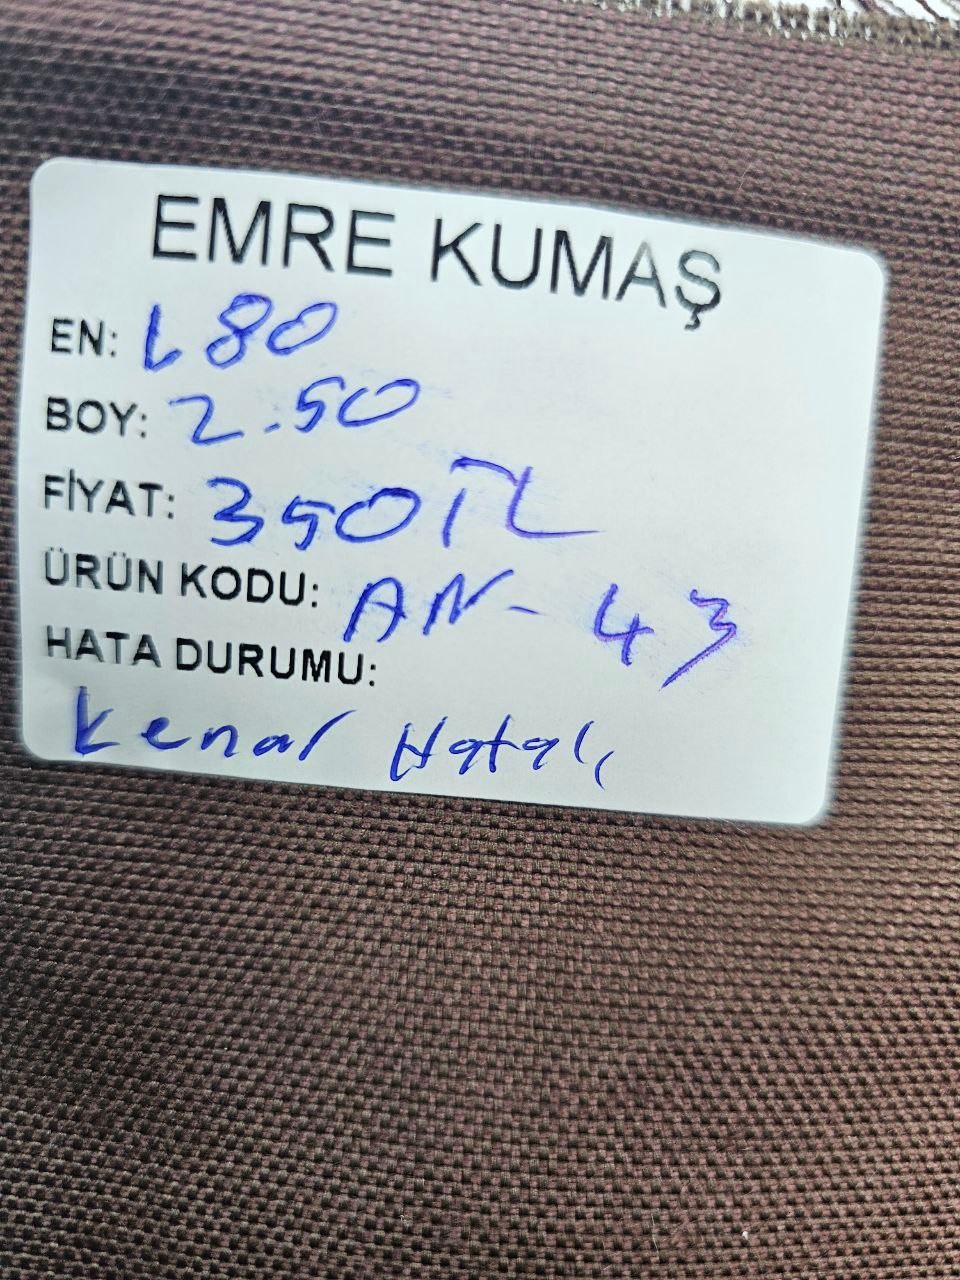 EMRE KUMAŞ
EN: 1.80
BOY: 2.50
FİYAT: 350 TL
ÜRÜN KODU: AN-43
HATA DURUMU:
Kenar Hatalı